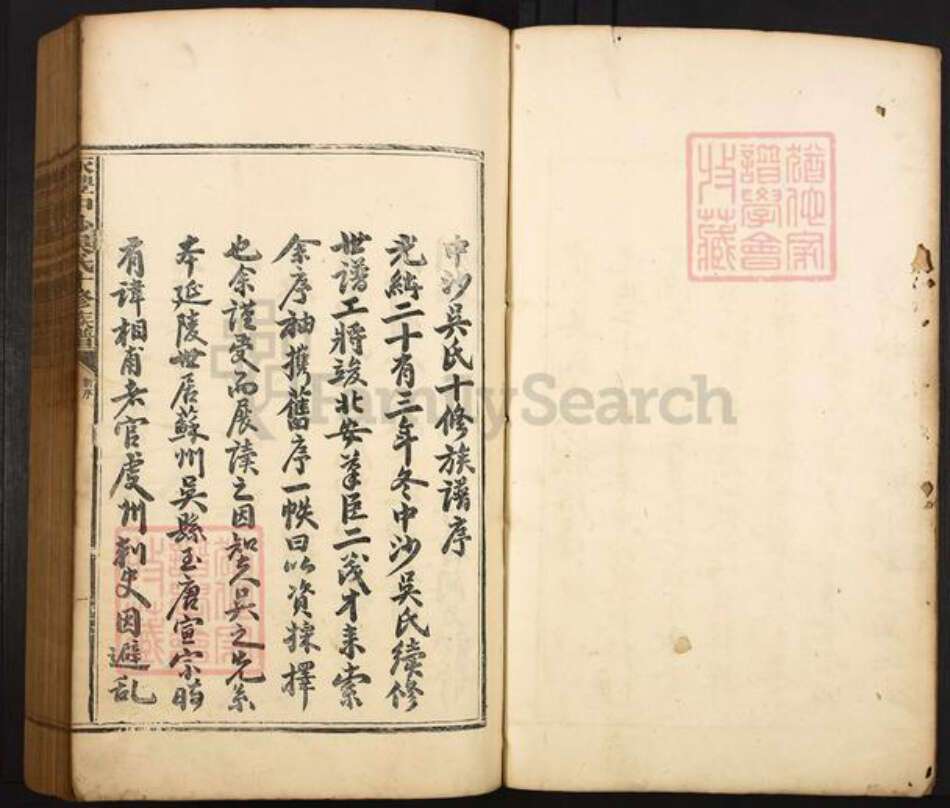 猶他家
譜學會
收藏
中沙吳氏十修族譜序
光緒二十有三年冬中沙吳氏續修
世譜工將竣北安葦臣二茂才来索
余序袖携舊序一帙曰以資採擇
也余謹受而展读之因知吳之先系
本延陵世居蘇州吳縣至唐宣宗時
有諱相甫者官虔州刺史因避乱
中沙吳氏十修族譜
FamilySearch
猶他家
譜學會
收藏